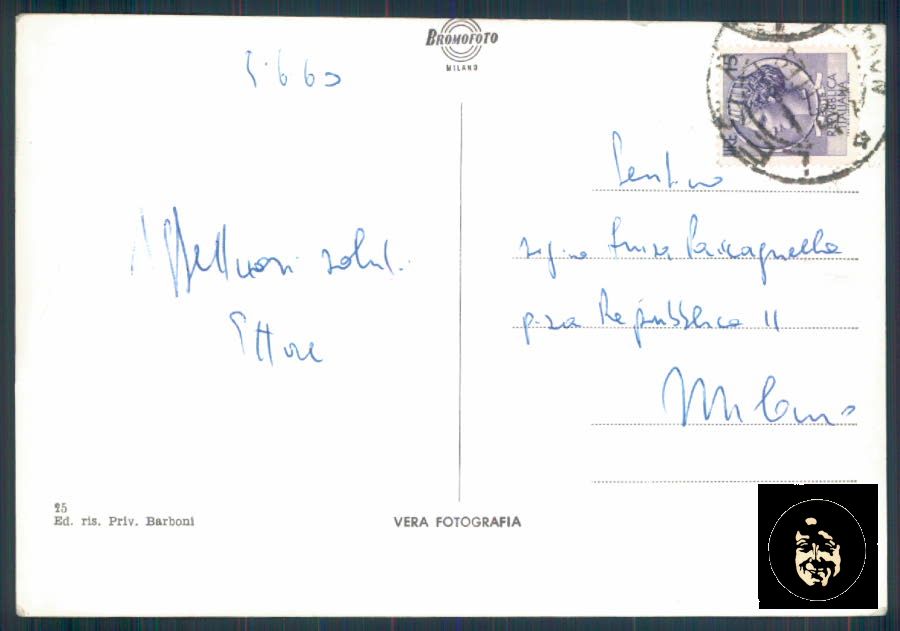 BROMOFOTO
MILANO
5.6.60
Affettuosi saluti.
Ettore
LIRE 15
REPUBBLICA
ITALIANA
Gent.ma
sig.na Luisa
p.za Repubblica 11
Milano
25
Ed. ris. Priv. Barboni
VERA FOTOGRAFIA